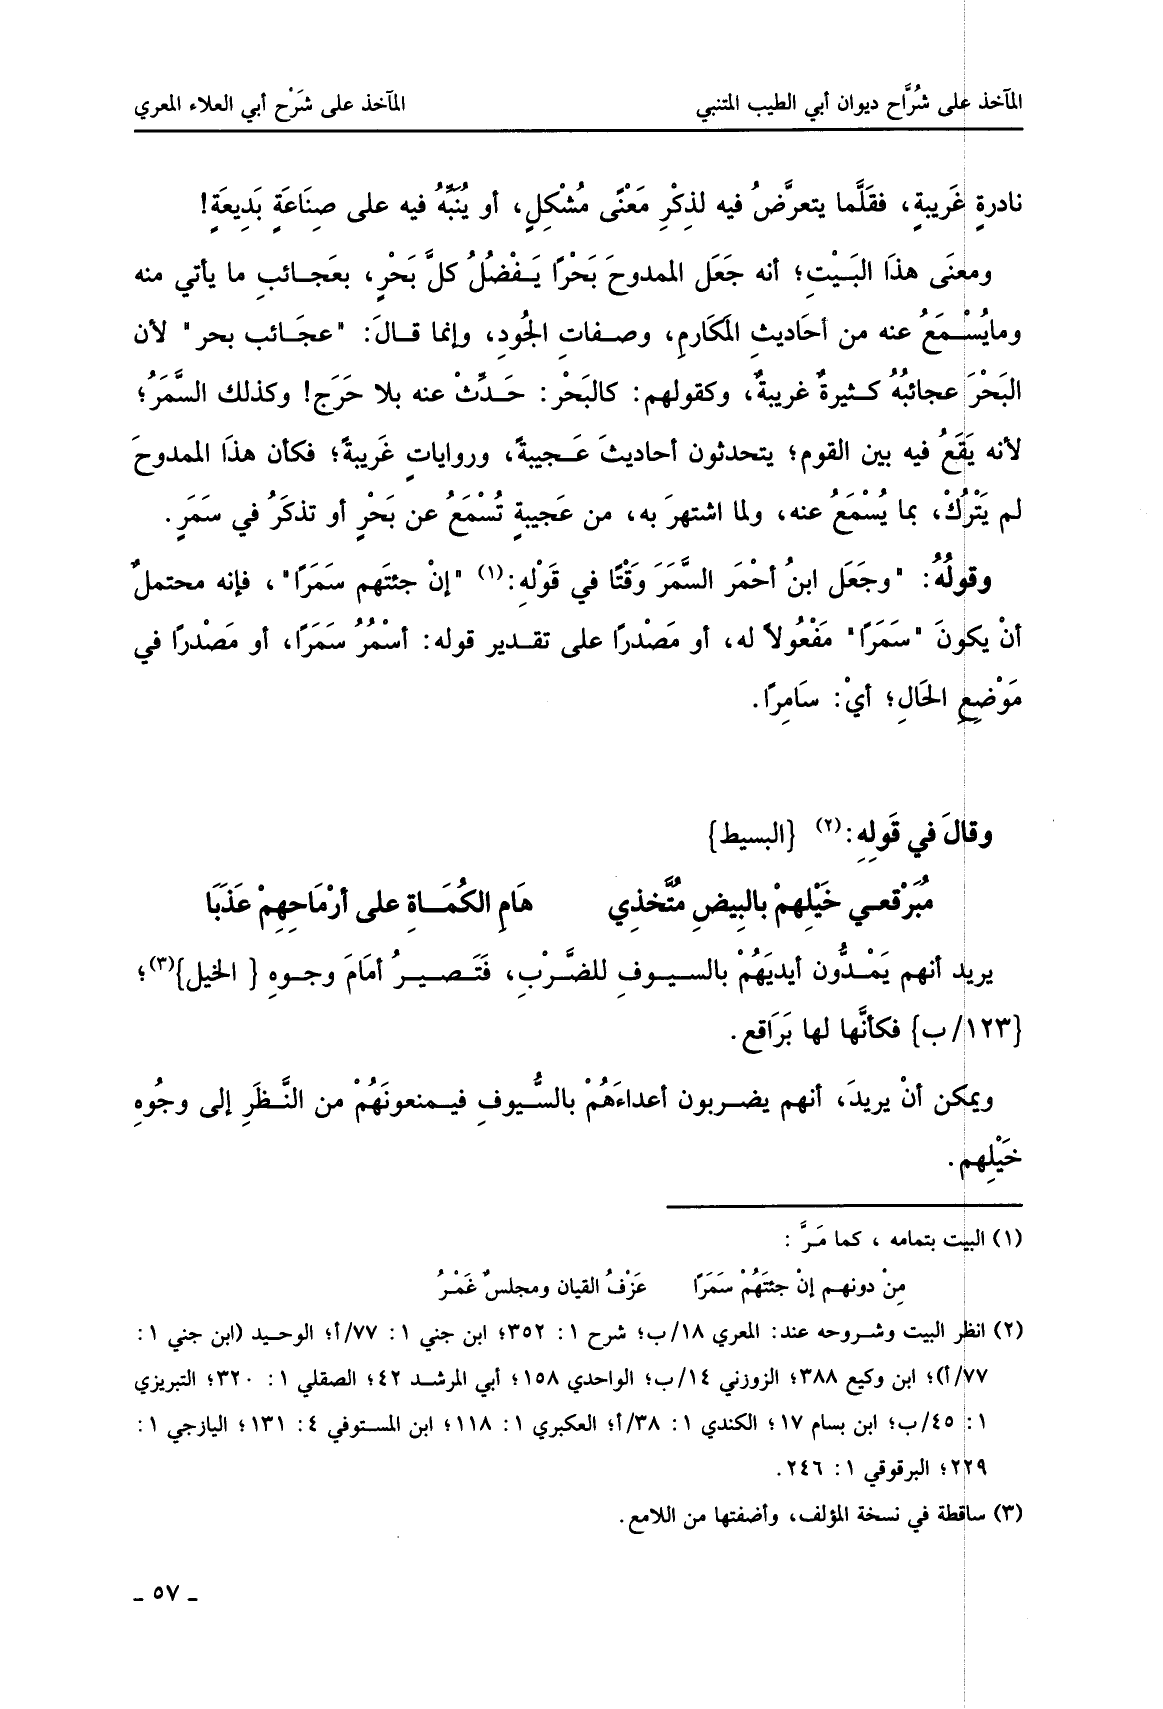 المآخذ على شُرَّاح ديوان أبي الطيب المتنبي المآخذ على شَرْح أبي العلاء المعري
نادرةٍ غَريبةٍ، فقَلَّما يتعرَّضُ فيه لذِكِرْ مَعْنًى مُشْكِلٍ، أو يُنَبِّهُ فيه على صِنَاعَةٍ بَدِيعَةٍ!
ومعنَى هذَا البَيْتِ؛ أنه جَعَل الممدوحَ بَحْرًا يَفْضُلُ كلَّ بَحْرٍ، بعَجائبِ ما يأتي منه
ومايُسْمَعُ عنه من أحَاديثِ المَكَارمِ، وصفاتِ الجُود، وإنما قالَ: "عجَائب بحر" لأن
البَحْرَ عجائبُهُ كثيرةٌ غريبةٌ، وكقولهم: كالبَحْر: حَدِّثْ عنه بلا حَرَج! وكذلك السَّمَرُ؛
لأنه يَقَعُ فيه بين القوم؛ يتحدثون أحاديثَ عَجيبةً، ورواياتٍ غَريبةً؛ فكأن هذَا الممدوحَ
لم يَتْرُكْ، بما يُسْمَعُ عنه، ولما اشتهرَ به، من عَجيبةٍ تُسْمَعُ عن بَحْرٍ أو تذكَرُ في سَمَرٍ.
وقولُهُ: "وجَعَل ابنُ أحْمَر السَّمَرَ وَقْتًا في قَوْلهِ:(١) "إنْ جئتَهم سَمَرًا"، فإنه محتملٌ
أنْ يكونَ "سَمَرًا" مَفْعُولاً له، أو مَصْدرًا على تقدير قوله: أسْمُرُ سَمَرًا، أو مَصْدرًا في
مَوْضِعِ الحَالِ؛ أيْ: سَامِرًا.
وقالَ في قَولِهِ:(٢) {البسيط}
مُبَرْقعي خَيْلِهمْ بالبِيضِ مُتَّخذِي هَامِ الكُمَاةِ على أرْمَاحِهِمْ عَذَبَا
يريد أنهم يَمْدُّون أيديَهُمْ بالسيوفِ للضَّرْبِ، فَتَصيرُ أمَامَ وجوهِ { الخيل}(٣)؛
{١٢٣/ ب} فكأنَّها لها بَرَاقع.
ويمكن أنْ يريدَ، أنهم يضربون أعداءَهُمْ بالسُّيوفِ فيمنعونَهُمْ من النَّظَرِ إلى وجُوهِ
خَيْلِهم.
(١) البيت بتمامه ، كما مَرَّ :
مِنْ دونهم إنْ جئتَهُمْ سَمَرًا عَزْفُ القيان ومجلسٌ غَمْرُ
(٢) انظر البيت وشروحه عند: المعري ١٨/ب؛ شرح ١: ٣٥٢؛ ابن جني ١: ٧٧/أ؛ الوحيد (ابن جني ١:
٧٧/أ)؛ ابن وكيع ٣٨٨؛ الزوزني ١٤/ب؛ الواحدي ١٥٨؛ أبي المرشد ٤٢؛ الصقلي ١: ٣٢٠؛ التبريزي
١: ٤٥/ب؛ ابن بسام ١٧؛ الكندي ١: ٣٨/أ؛ العكبري ١: ١١٨؛ ابن المستوفي ٤: ١٣١؛ اليازجي ١:
٢٢٩؛ البرقوقي ١: ٢٤٦.
(٣) ساقطة في نسخة المؤلف، وأضفتها من اللامع.
ـ ٥٧ ـ